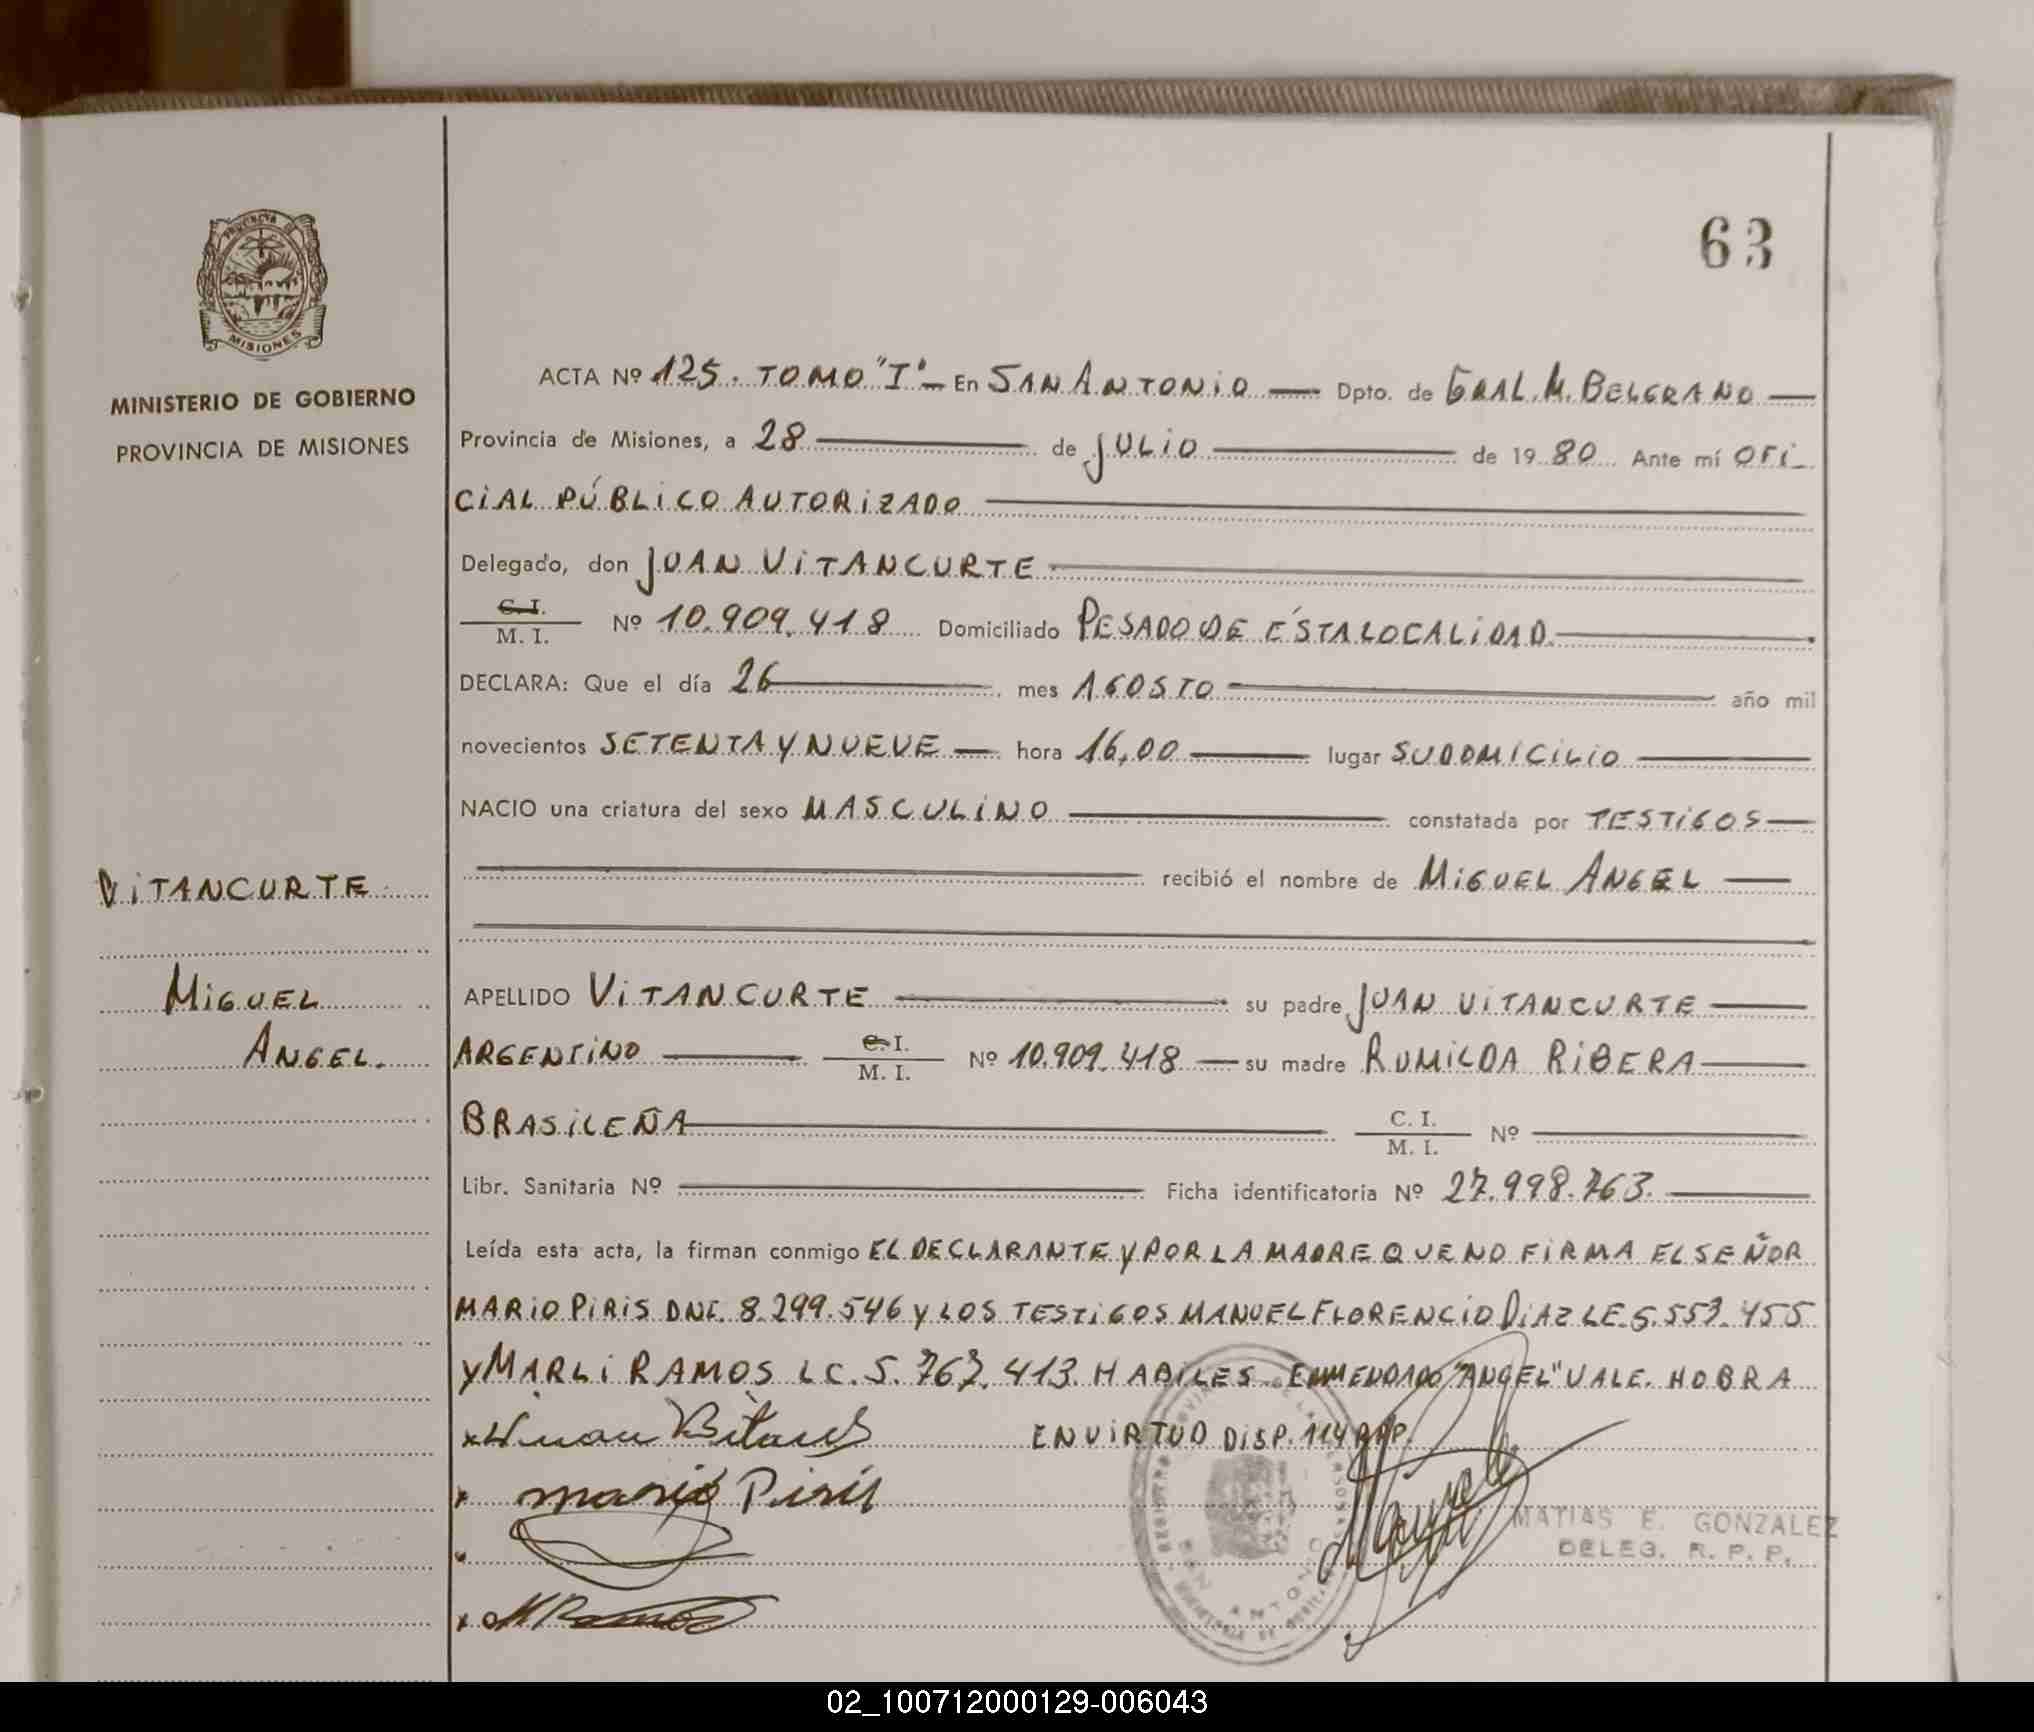 63
PROVINCIA DE
MISIONES
MINISTERIO DE GOBIERNO
PROVINCIA DE MISIONES
VITANCURTE
MIGUEL
ANGEL.
ACTA Nº 125. TOMO "I" En SAN ANTONIO Dpto. de GRAL. M. BELGRANO
Provincia de Misiones, a 28 de JULIO de 1980 Ante mí OFI
CIAL PÚBLICO AUTORIZADO
Delegado, don JUAN VITANCURTE
C. I.
M. I. Nº 10.909.418 Domiciliado PESADO DE ÉSTA LOCALIDAD.
DECLARA: Que el día 26 mes AGOSTO año mil
novecientos SETENTA Y NUEVE hora 16,00 lugar SU DOMICILIO
NACIO una criatura del sexo MASCULINO constatada por TESTIGOS
recibió el nombre de MIGUEL ANGEL
APELLIDO VITANCURTE su padre JUAN VITANCURTE
ARGENTINO C. I.
M. I. Nº 10.909.418 su madre ROMILDA RIBERA
BRASILEÑA C. I.
M. I. Nº
Libr. Sanitaria Nº Ficha identificatoria Nº 27.998.763.
Leída esta acta, la firman conmigo EL DECLARANTE Y POR LA MADRE QUE NO FIRMA EL SEÑOR
MARIO PIRIS DNI. 8.299.546 Y LOS TESTIGOS MANUEL FLORENCIO DIAZ LE. 5.553.455
Y MARLI RAMOS LC. 5.767.413 HABILES. ENMENDADO "ANGEL" VALE. HOBRA
EN VIRTUD DISP. 114 RPP.
Mario Piris
M Ramos
MATIAS E. GONZALEZ
DELEG. R. P. P.
SAN ANTONIO
02_100712000129-006043